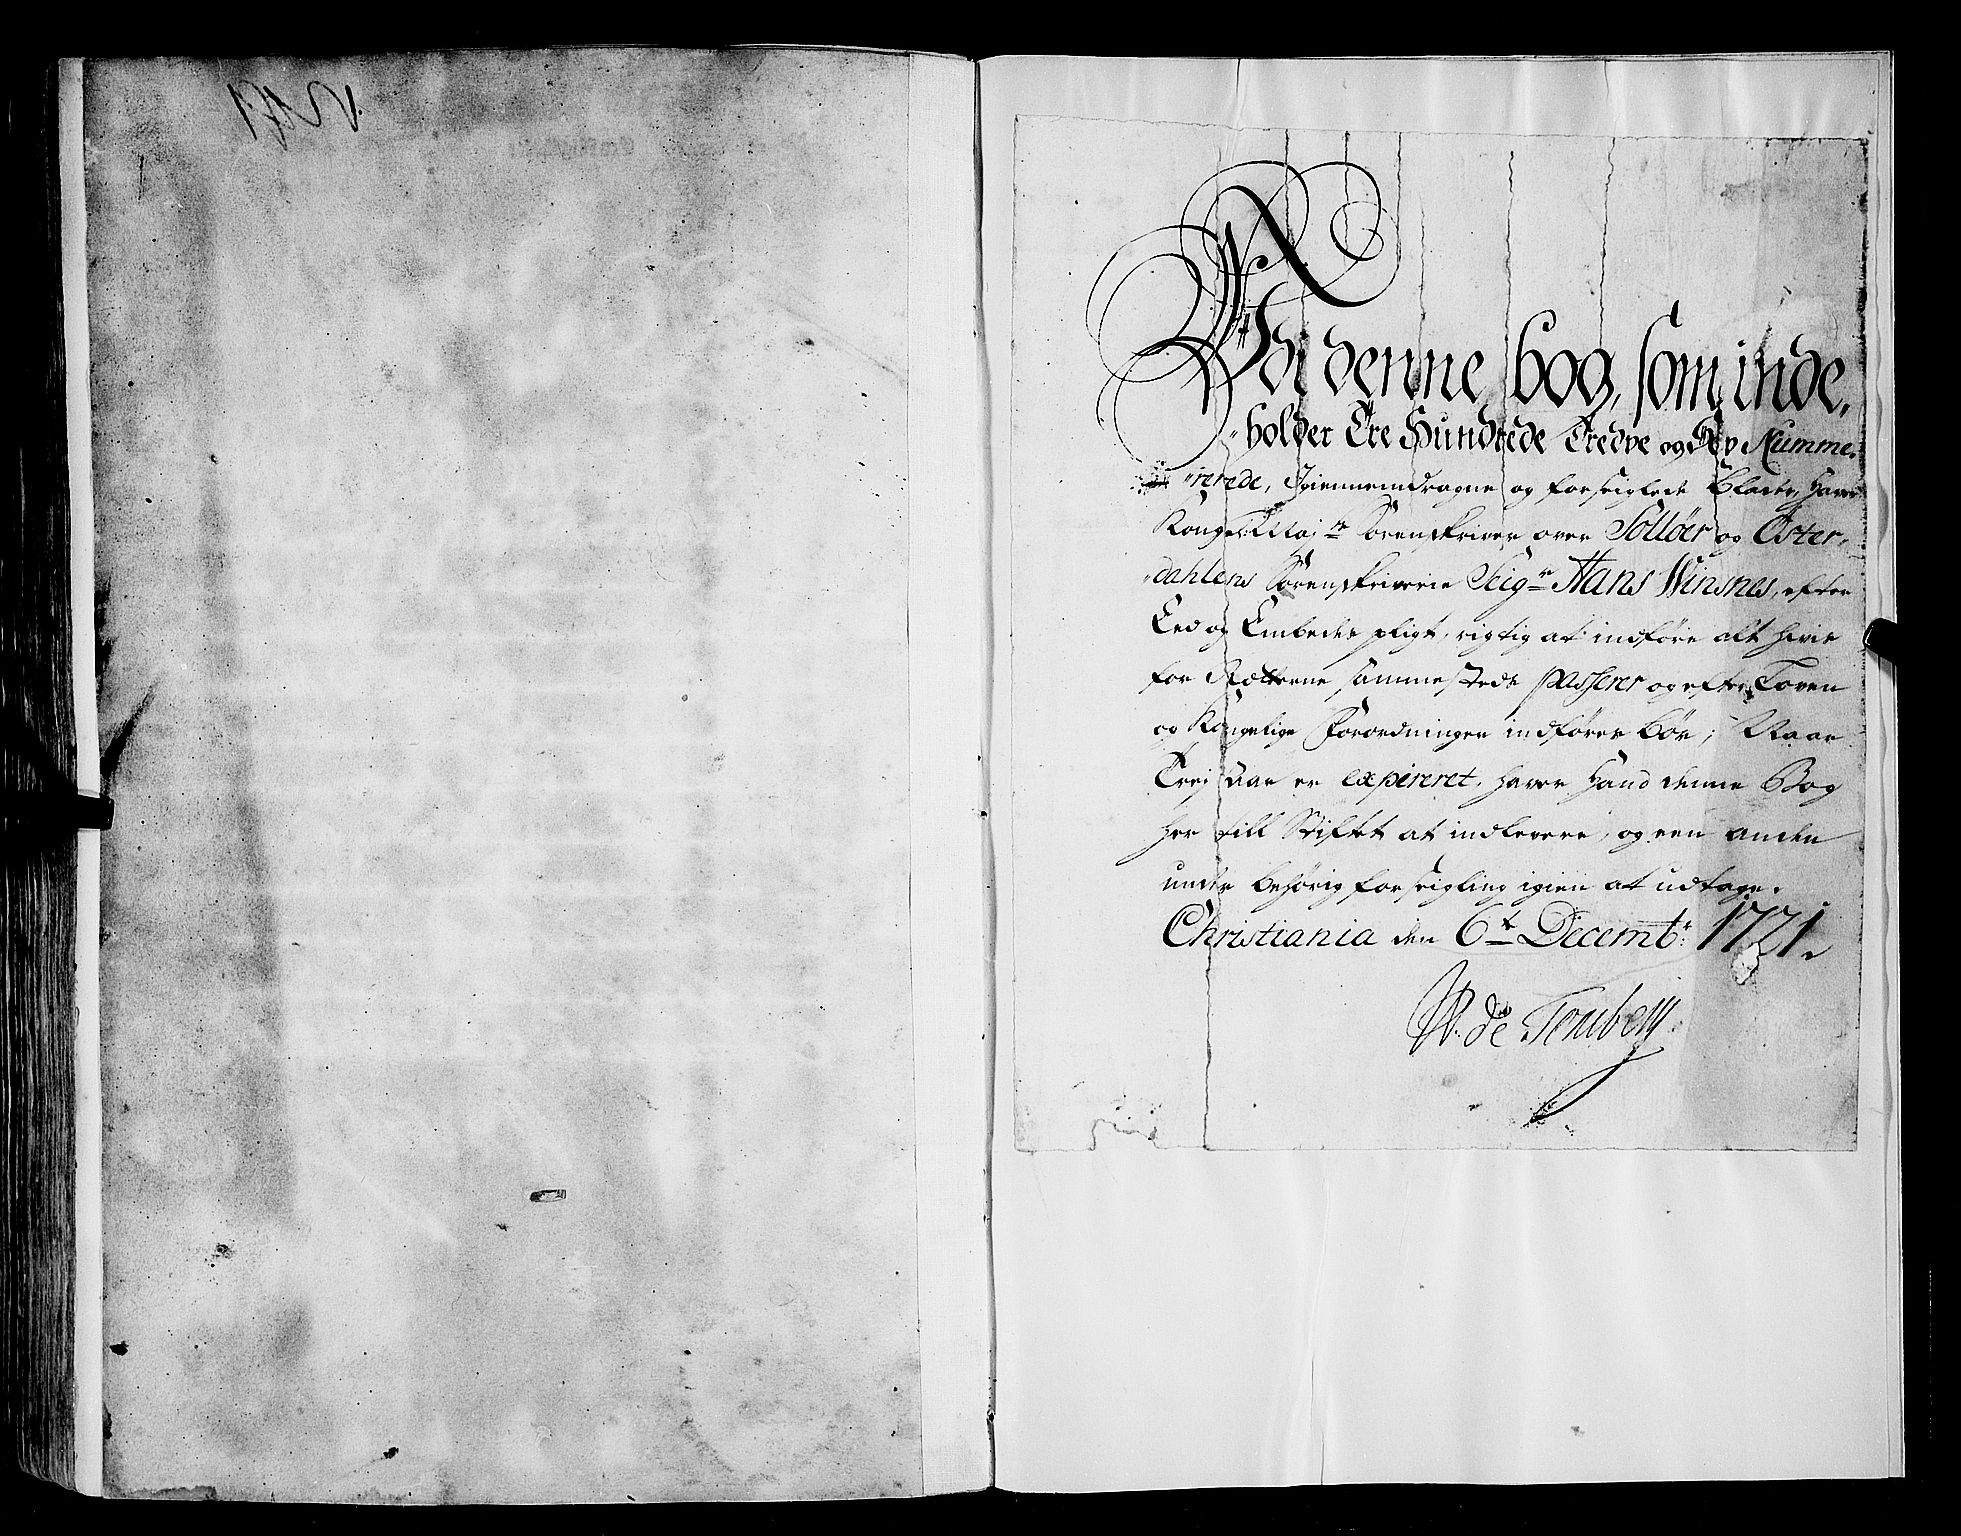 Udi denne bog, som inde,
holder Tre Hundrede Tredve og Numme,
rerede, Igiennemdragne og forseiglede Blade, haver
Kongel: Maj:ts Sorenskriver over Solløer og Øster,
dahlens Sorenskriverie Seig:r Hans Winsnes, efter
Eed og Embedes pligt, rigtig at indføre alt hvis
for Rætterne sammesteds passerer og efter Loven
og Kongelige Forordninger indføres bør; Naar
Trej Aar er expireret, haver Hand denne Bog
her till Stiftet at indlevere, og een anden
under behørig forseigling igien at udtage.
Christiania den 6t Decembr: 1721.
W. de Tonsberg